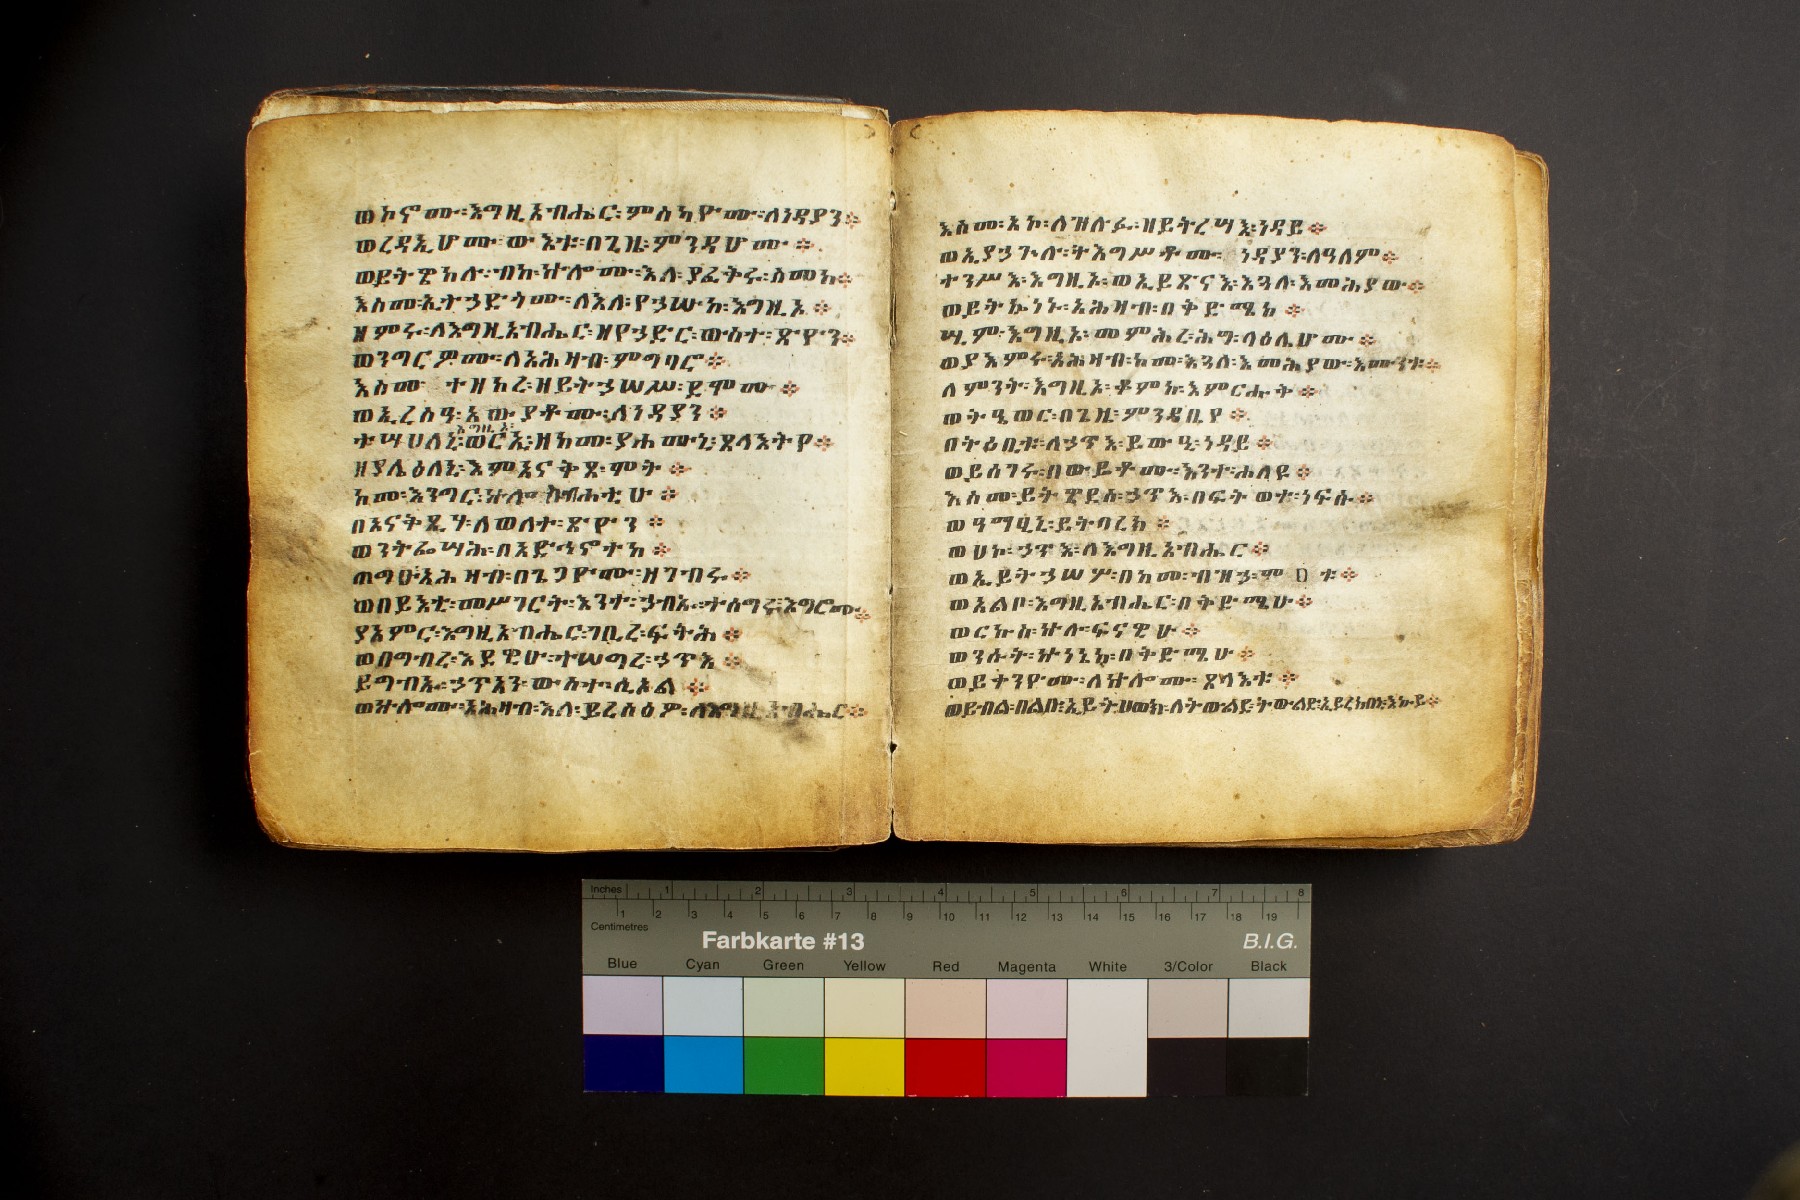 ወኮኖሙ፡እግዚአብሔር፡ምስካዮሙ፡ለነዳያን፨
ወረዳኢሆሙ፡ውእቱ፡በጊዜ፡ምንዳቤሆሙ፨
ወይትዌከሉ፡ብከ፡ኵሎሙ፡እለ፡ያፈቅሩ፡ስመከ፨
እስመ፡ኢተኃድጎሙ፡ለእለ፡የኃሡከ፡እግዚኦ፨
ዘምሩ፡ለእግዚአብሔር፡ዘየኃድር፡ውስተ፡ጽዮን፨
ወንግርዎሙ፡ለአሕዛብ፡ምግባሮ፨
እስመ፡ ተዘከረ፡ዘይትኃሠሥ፡ደሞሙ፨
ወኢረስዓ፡አውያቶሙ፡ለነዳያን፨
እግዚኦ፡
ተሣሀለኒ፡ወርኢ፡ዘከመ፡ያሐሙኒ፡ጸላእትየ፨
ዘያሌዕለኒ፡እምአናቅጸ፡ሞት፨
ከመ፡እንግር፡ኵሎ፡ስብሐቲሁ፨
በአናቅጺሃ፡ለወለተ፡ጽዮን፨
ወንትፌሣሕ፡በአድኅኖትከ፨
ጠግዑ፡አሕዛብ፡በጌጋዮሙ፡ዘገብሩ፨
ወበይእቲ፡መሥገርት፡እንተ፡ኃብኡ፡ተሰግሩ፡እግሮሙ፨
ያአምር፡እግዚአብሔር፡ገቢረ፡ፍትሕ፨
ወበግብረ፡እደዊሁ፡ተሠግረ፡ኃጥእ፨
ይግብኡ፡ኃጥአን፡ውስተ፡ሲኦል፨
ወኵሎሙ፡አሕዛብ፡እለ፡ይረስዕዎ፡ለእግዚአብሔር፨
እስመ፡አኮ፡ለዝሉፉ፡ዘይትረሣእ፡ነዳይ፨
ወኢያኃጕሉ፡ትእግሥቶሙ፡ ነዳያን፡ለዓለም፨
ተንሥእ፡እግዚኦ፡ወኢይጽናእ፡እጓለ፡እመሕያው፨
ወይትኴነኑ፡አሕዛብ፡በቅድሜከ፨
ሢም፡እግዚኦ፡መምሕረ፡ሕግ፡ላዕሌሆሙ፨
ወያእምሩ፡አሕዛብ፡ከመ፡እጓለ፡እመሕያው፡እሙንቱ፨
ለምንት፡እግዚኦ፡ቆምከ፡እምርሑቅ፨
ወትዔወር፡በጊዜ፡ምንዳቤየ፨
በትዕቢቱ፡ለኃጥእ፡ይውዒ፡ነዳይ፨
ወይሰገሩ፡በውዴቶሙ፡እንተ፡ሐለዩ፨
እስመ፡ይትዌደስ፡ኃጥእ፡በፍትወተ፡ነፍሱ፨
ወዓማፂኒ፡ይትባረክ፨
ወሀኮ፡ኃጥእ፡ለእግዚአብሔር፨
ወኢይትኃሠሦ፡በከመ፡ብዝኃ፡መዐቱ፨
ወአልቦ፡እግዚአብሔር፡በቅድሜሁ፨
ወርኩስ፡ኵሉ፡ፍናዊሁ፨
ወንሱት፡ኵነኔከ፡በቅድሜሁ፨
ወይቀንዮሙ፡ለኵሎሙ፡ጸላእቱ፨
ወይብል፡በልቡ፡ኢይትሀወክ፡ለትውልደ፡ትውልድ፡ኢይረክበኒ፡እኩይ፨